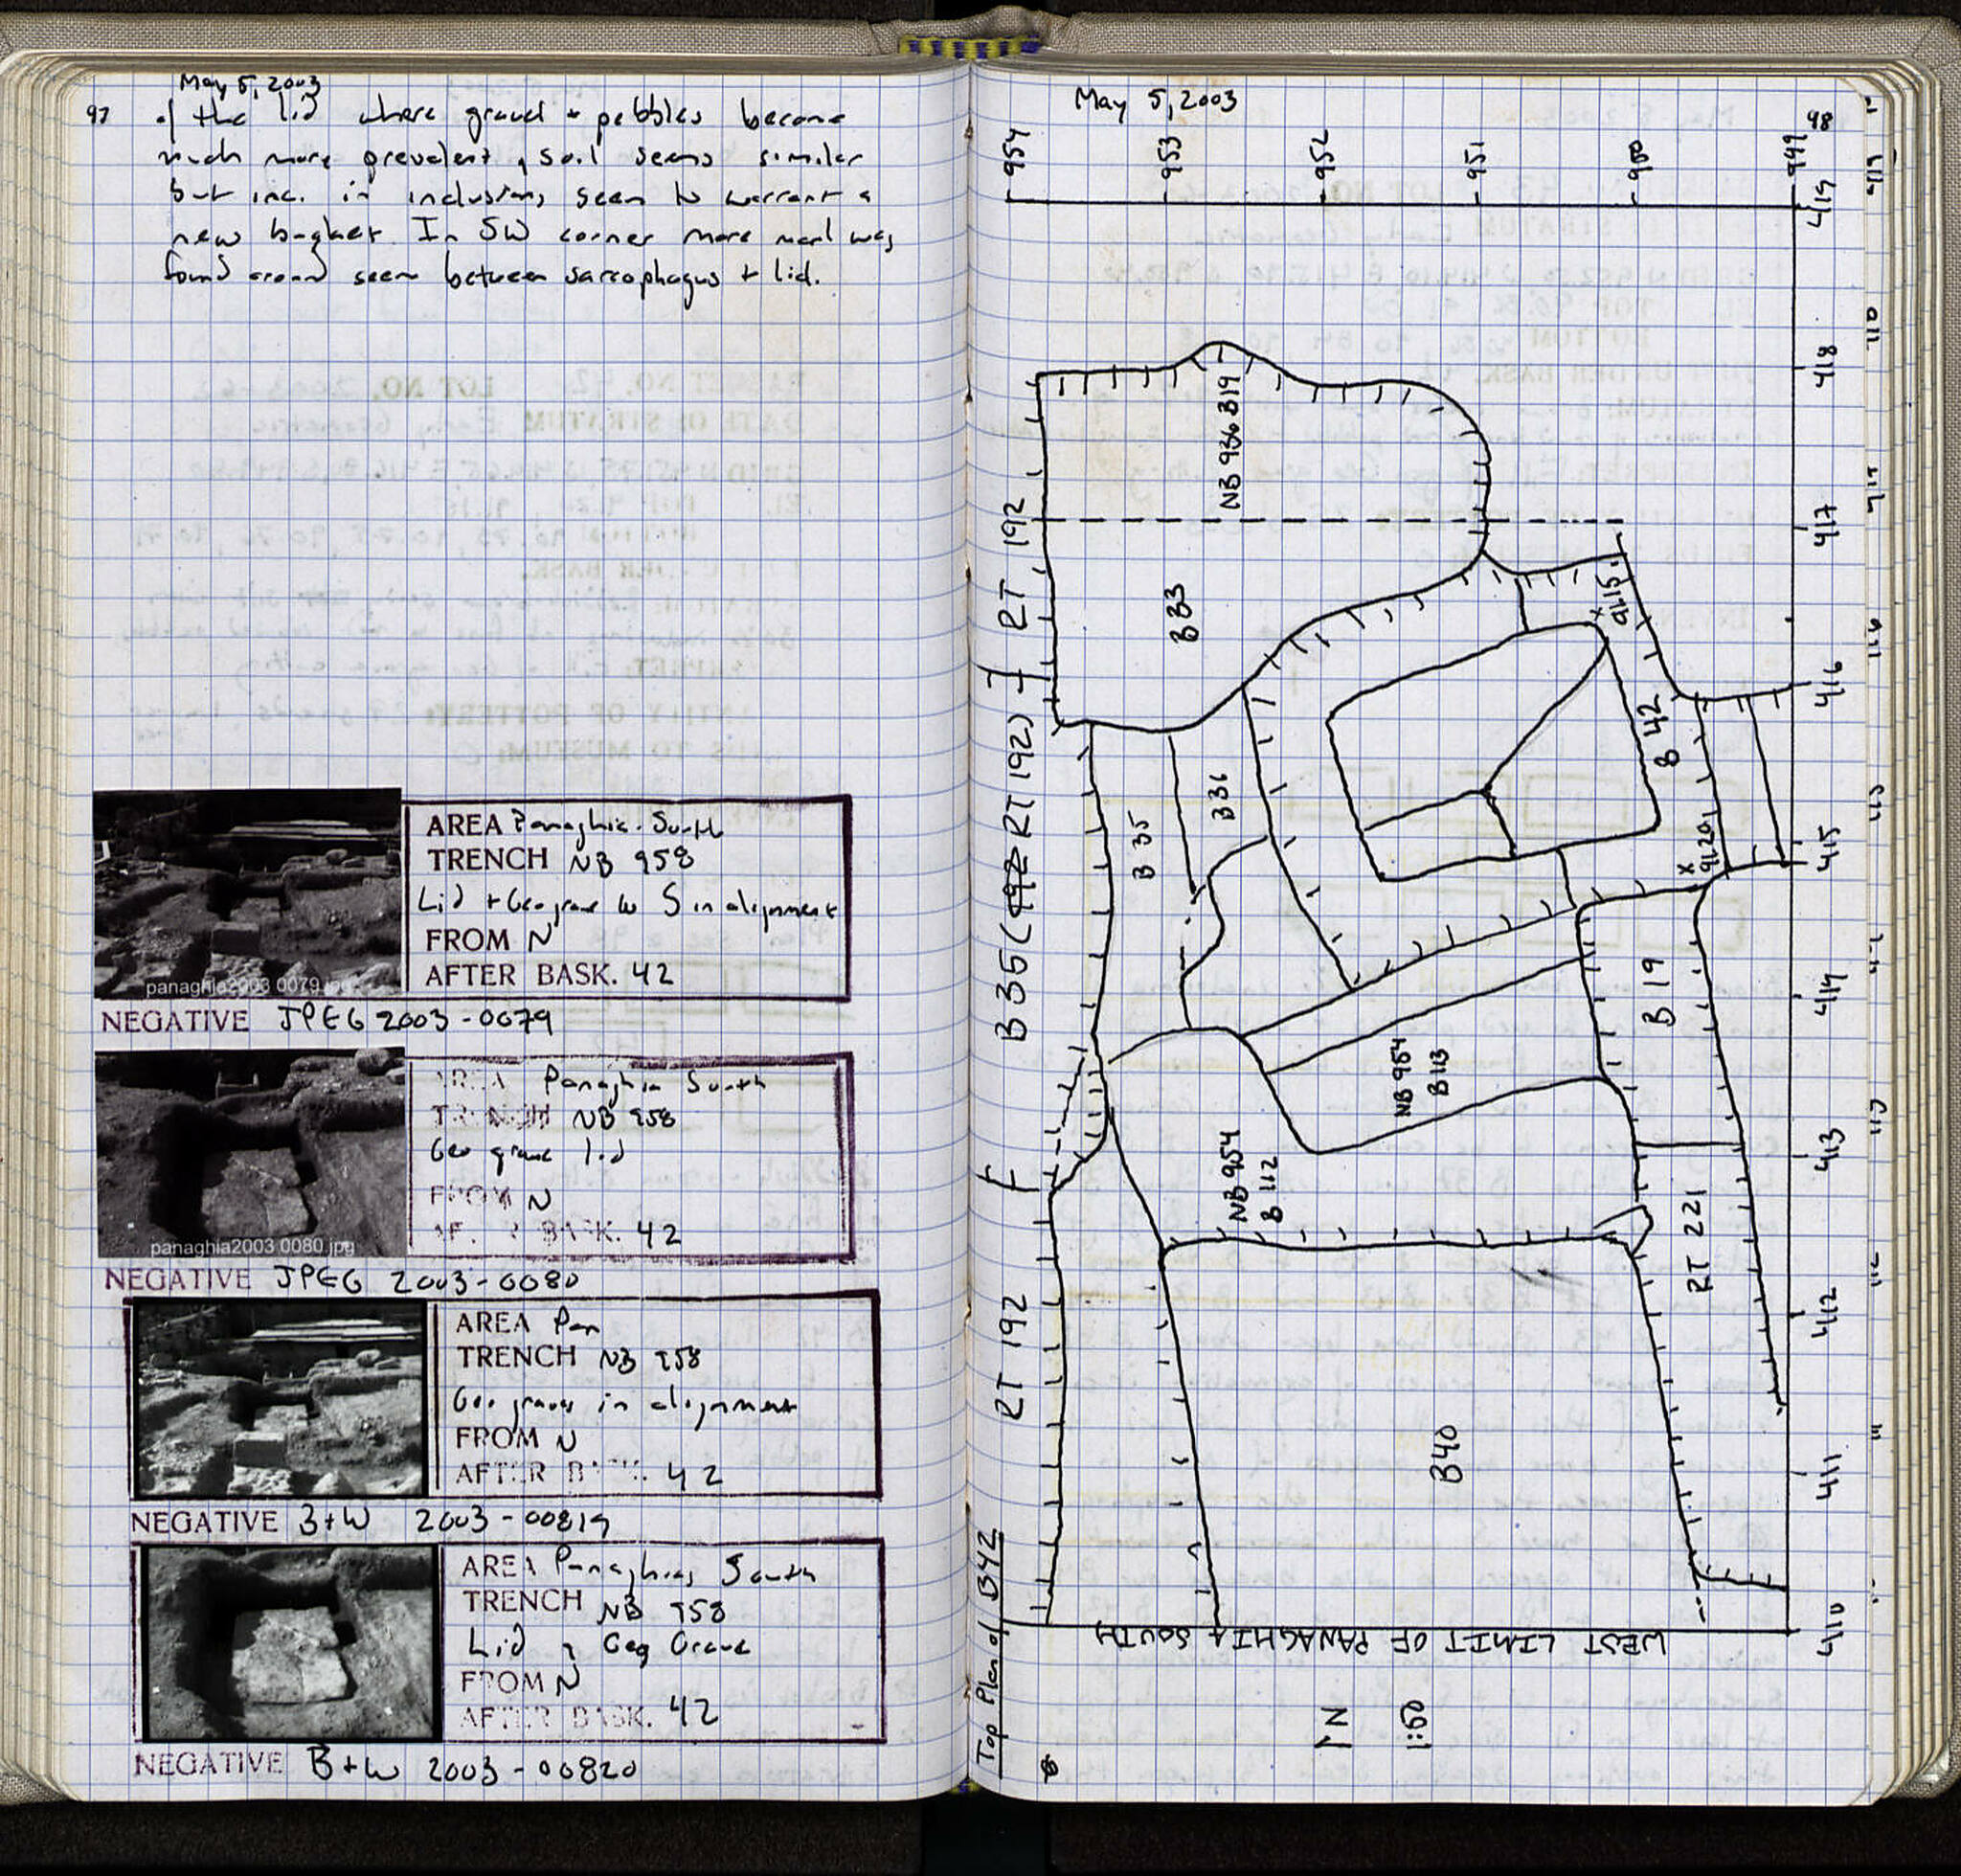 May 5, 2003
97
of the lid where gravel + pebbles become
much more prevalent, soil seems similar
but inc. in inclusions seem to warrant a
new basket. In SW corner more marl was
found around seem between sarcophagus + lid.
AREA Panaghia South
TRENCH NB 958
Lid + Geo grave to S in alignment
FROM N
AFTER BASK. 42
panaghia2003 0079.jpg
NEGATIVE JPEG 2003-0079
AREA Panaghia South
TRENCH NB 958
Geo grave lid
FROM N
AFTER BASK. 42
panaghia2003 0080.jpg
NEGATIVE JPEG 2003-0080
AREA Pan
TRENCH NB 958
Geo graves in alignment
FROM N
AFTER BASK. 42
NEGATIVE B+W 2003-00819
AREA Panaghia South
TRENCH NB 958
Lid Geo Grave
FROM N
AFTER BASK. 42
NEGATIVE B+W 2003-00820
May 5, 2003
98
954
953
952
951
950
949
419
418
417
416
415
414
413
412
411
410
RT 192
B35 (192 RT 192)
RT 192
Top Plan of B42
NB 936 B19
B33
91.15
B 42
B 36
B 35
91.201
B 19
NB 954
B 113
NB 954
B 112
RT 221
B40
WEST LIMIT OF PANAGHIA SOUTH
N
1:50